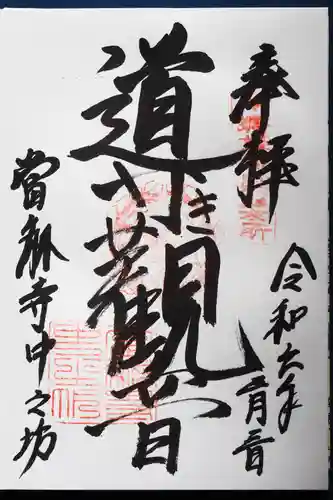 奉拝
令和六年
導き観音
當麻寺中之坊